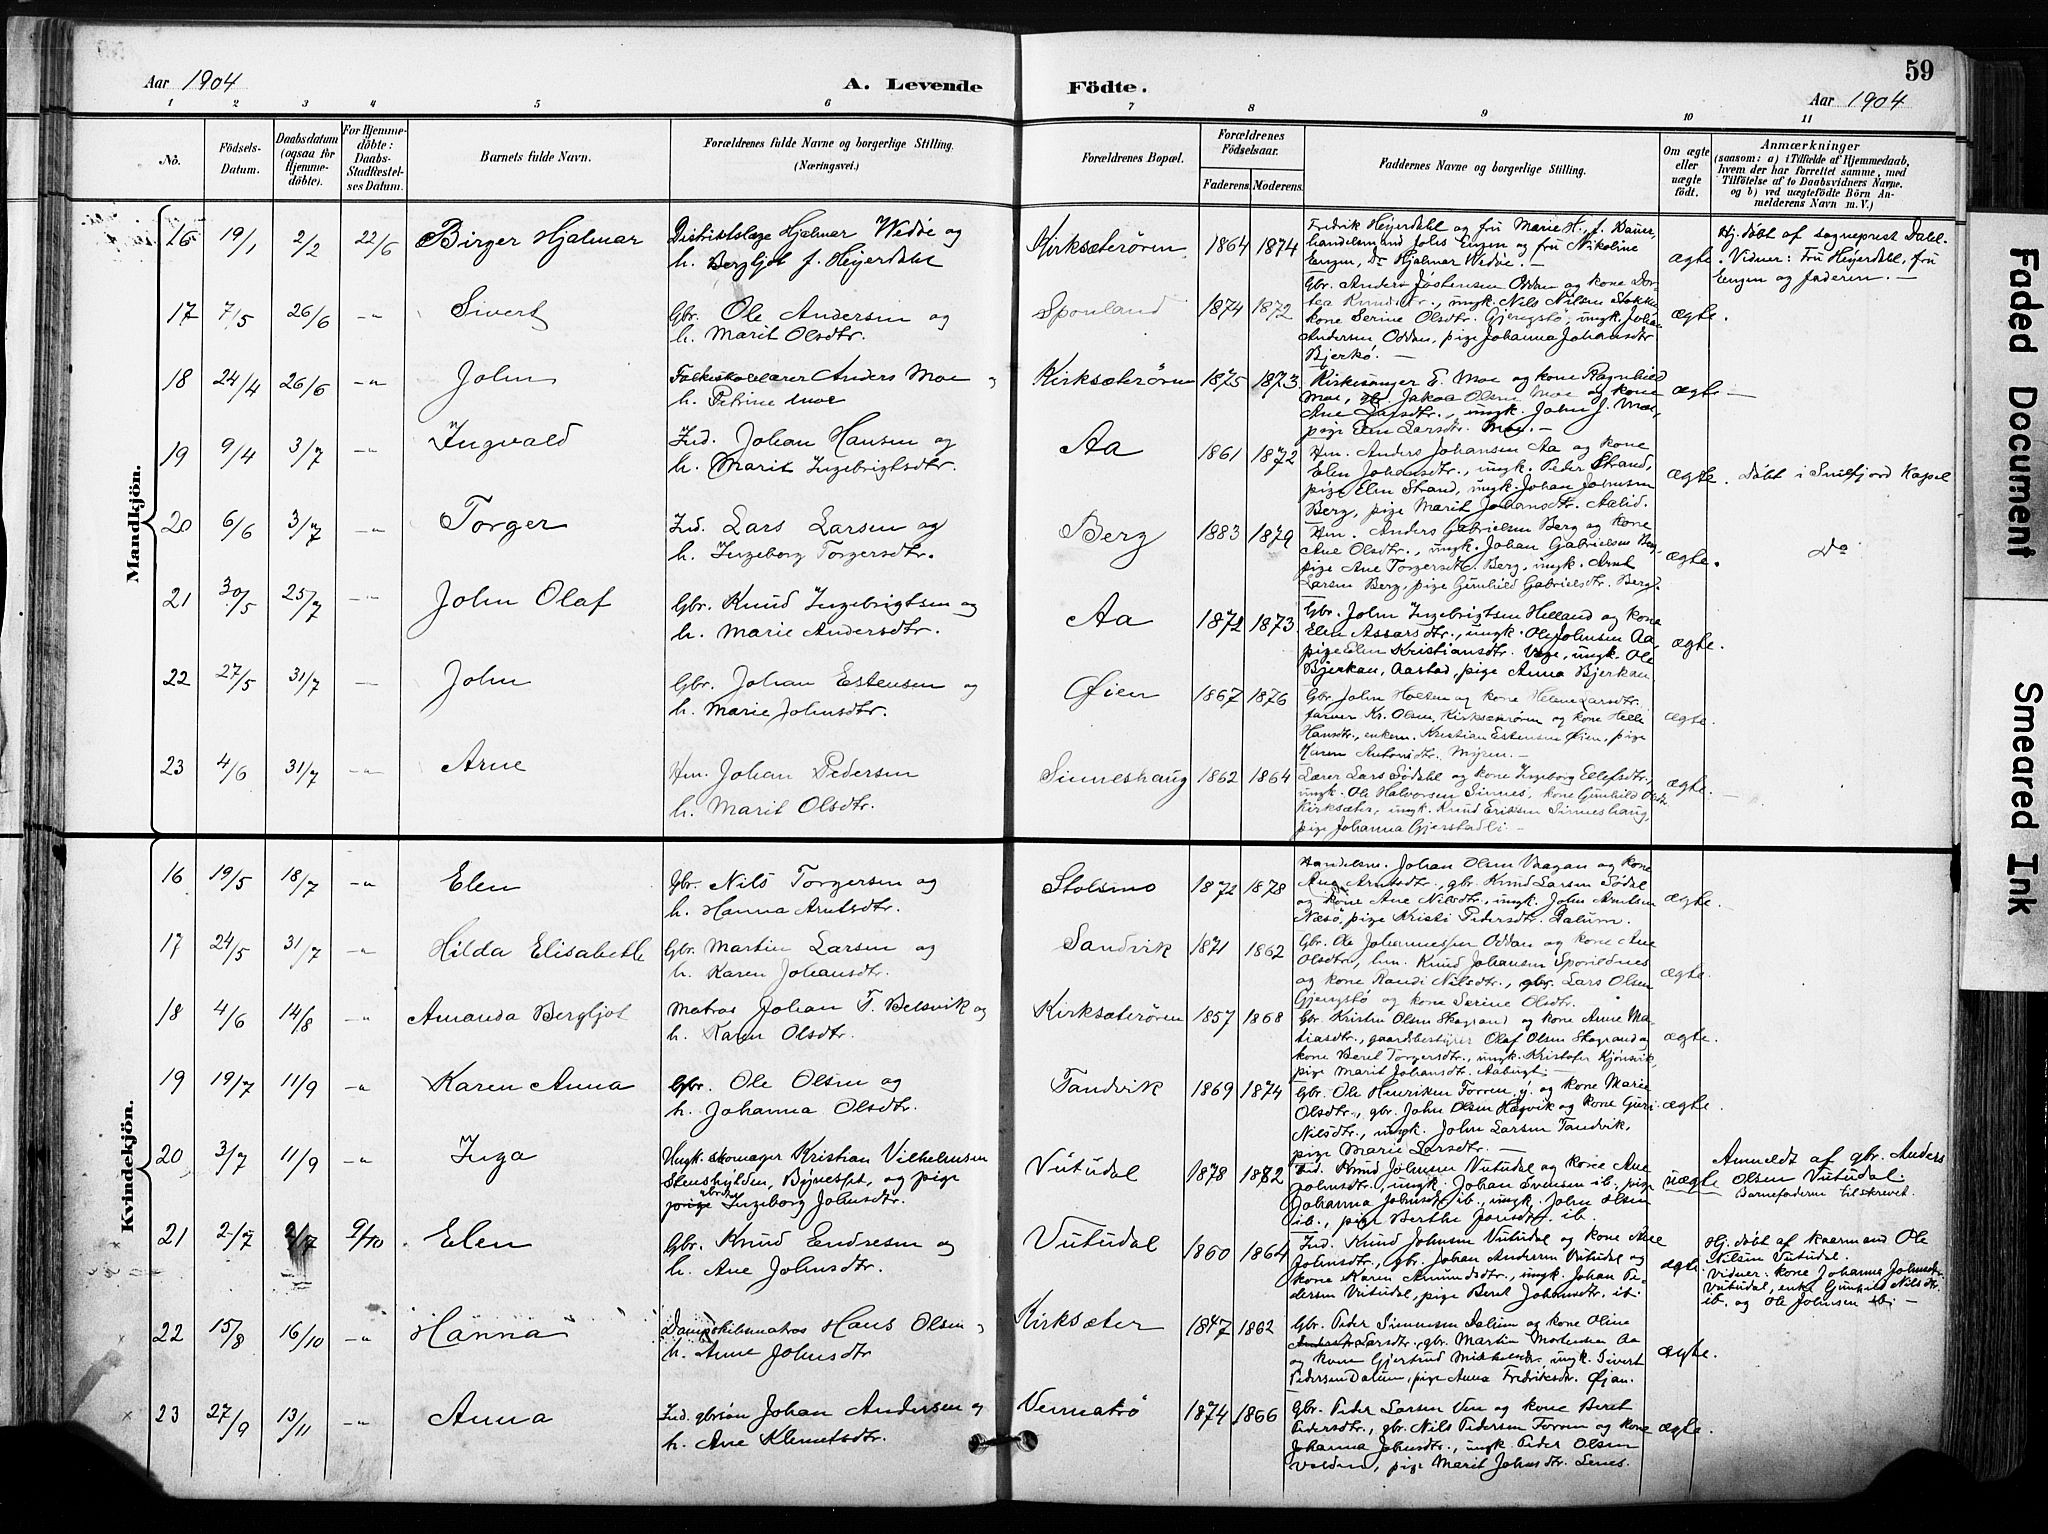 Aar 1904
A. Levende
Födte.
59
Aar 1904
1 2 3 4 5 6 7 8 9 10 11
No.
Födsels-
Datum.
Daabsdatum
(ogsaa for
Hjemme-
döbte).
For Hjemme-
döbte:
Daabs-
Stadfæstel-
ses Datum.
Barnets fulde Navn.
Forældrenes fulde Navne og borgerlige Stilling.
(Næringsvei.)
Forældrenes Bopæl.
Forældrenes
Födselsaar.
Faderens. Moderens.
Faddernes Navne og borgerlige Stilling.
Om ægte
eller
uægte
födt.
Anmærkninger
(saasom: a) i Tilfælde af Hjemmedaab,
hvem der har forrettet samme, med
Tilföielse af to Daabsvidners Navne.
og b) ved uægtefödte Börn An-
melderens Navn m. V.)
Mandkjön.
16 19/1 2/2 22/6 Birger Hjalmar
Distriktslæge Hjalmar Wedøe og
h. Bergljot f. Heyerdahl
Kirksæterøren 1864 1874
Fredrik Heyerdahl og fru Marie H., f. Daure,
handelsmand Johs Engen og fru Nikoline
Engen, Dr Hjalmar Wedøe. —
ægte.
Hj. døbt af sogneprest Dahl.
Vidner: Fru Heyerdahl, fru
Engen og faderen. —
17 7/5 26/6 -"- Sivert
Gbr. Ole Andersen og
h. Marit Olsdtr.
Sponland 1874 1872
Gbr. Anders Jostensen Oddan og kone Dor-
tea Knudsdtr., ungk. Nils Nilsen Stokke,
kone Serine Olsdtr. Gjengstø, ungk. Johan
Andersen Oddan, pige Johanna Johansdtr
Bjerkø. —
ægte.
18 24/4 26/6 -"- John
Folkeskolelærer Anders Moe og
h. Petrine Moe
Kirksæterøren 1875 1873
Kirkesanger E. Moe og kone Ragnhild
Moe, gbr. Jakob Olsen Moe og kone
Ane Larsdtr., ungk. John J. Moe,
pige Elen Larsdtr. Moe. —
ægte —
19 9/4 3/7 -"- Ingvald
Ind. Johan Hansen og
h. Marit Ingebrigtsdtr.
Aa 1861 1872
Hm. Anders Johansen Aa og kone
Elen Johansdtr., ungk. Peder Strand,
pige Elen Strand, ungk. Johan Johnsen
Berg, pige Marit Johansdtr. Aalid.
ægte. Døbt i Snilfjord Kapel
20 6/6 3/7 -"- Torger
Ind. Lars Larsen og
h. Ingeborg Torgersdtr.
Berg 1883 1879
Hm. Anders Gabrielsen Berg og kone
Ane Olsdtr., ungk. Johan Gabrielsen Berg,
pige Ane Torgersdtr. Berg, ungk. Arnt
Larsen Berg, pige Gunhild Gabrielsdtr. Berg.
ægte. Do
21 30/5 25/7 -"- John Olaf
Gbr. Knud Ingebrigtsen og
h. Marie Andersdtr.
Aa 1872 1873
Gbr. John Ingebrigtsen Helland og kone
Elen Assarsdtr., ungk. Ole Johnsen Aa,
pige Elen Kristiansdtr. Vage, ungk. Ole
Bjerkan, Aastad, pige Anna Bjerkan
ægte.
22 27/5 31/7 — John
Gbr. Johan Estensen og
h. Marie Johnsdtr.
Øien 1867 1876
Gbr. John Hollen og kone Helene Larsdtr.
farver Kr. Olsen, Kirksæterøren og kone Helle
Hansdtr., enkem. Kristian Estensen Øien, pige
Karen Antonsdtr. Myren. —
ægte.
23 4/6 31/7 -"- Arne
Hm. Johan Pedersen
h. Marit Olsdtr.
Sinneshaug 1862 1864
Lærer Lars Sødahl og kone Ingeborg Ellefsdtr.,
ungk. Ole Halvorsen Sinnes, kone Gunhild Olsdtr.
Kirksæter, ungk. Knud Eriksen Sinneshaug,
pige Johanna Gjerstadli —
ægte. —
Kvindekjön.
16 19/5 18/7 -"- Elen
Gbr. Nils Torgersen og
h. Hanna Arntsdtr.
Stolsmo 1872 1878
Handelsm. Johan Olsen Vaagan og kone
Ane Arntsdtr., gbr. Knud Larsen Sødal
og kone Ane Nilsdtr., ungk. John Arntsen
Næsø, pige Kristi Pedersdtr. Dalum.
ægte.
17 24/5 31/7 -"- Hilda Elisabeth
Gbr. Martin Larsen og
h. Karen Johansdtr.
Sandvik 1871 1862
Gbr. Ole Johannessen Oddan og kone Ane
Olsdtr., hm. Knud Johansen Sporildnes
og kone Randi Nilsdtr., gbr. Lars Olsen
Gjengstø og kone Serine Olsdtr.
ægte.
18 4/6 14/8 -"- Amanda Bergljot
Matros Johan T. Belsvik og
h. Karen Olsdtr.
Kirksæterøren 1857 1868
Gbr. Kristen Olsen Skogrand og kone Anne Ma-
tiasdtr., gaardsbestyrer Olaf Olsen Skogrand og
kone Beret Torgersdtr., ungk. Kristofer Kjønsvik,
pige Marit Johansdtr. Aabugt. —
ægte.
19 19/7 11/9 -"- Karen Anna
Gbr. Ole Olsen og
h. Johanna Olsdtr.
Tandvik 1869 1874
Gbr. Ole Henriksen Forren y. og kone Marie
Olsdtr., gbr. John Olsen Høgvik og kone Guri
Nilsdtr., ungk. John Larsen Tandvik,
pige Marie Larsdtr. —
ægte.
20 3/7 11/9 -"- Inga
Ungk. skomager Kristian Vilhelmsen
Stenshylden, Bynesset, og pige
Ingeborg Johnsdtr.
Vutudal 1878 1882
Ind. Knud Johnsen Vutudal og kone Ane
Johnsdtr., ungk. Johan Svensen ib., pige
Johanna Johnsdtr. ib., ungk. John Olsen
ib., pige Berthe Jonsdtr. ib.
uægte
Anmeldt af gbr. Anders
Olsen Vutudal.
Barnefaderen tilskrevet.
21 2/7 2/7 9/10 Elen
Gbr. Knud Endresen og
h. Ane Johnsdtr.
Vutudal 1860 1864
Ind. Knud Johnsen Vutudal og kone Ane
Johnsdtr., gbr. Johan Andersen Vutudal og
kone Karen Amundsdtr., ungk. Johan Pe-
dersen Vutudal, pige Beret Johansdtr. ib.
ægte
Hj. døbt af kaarmand Ole
Nilsen Vutudal.
Vidner: kone Johanna Johnsdtr.
Vutudal, enke Gunhild Nilsdtr.
ib. og Ole Johnsen ib. —
22 15/8 16/10 -"- Hanna
Dampskibsmatros Hans Olsen
h. Anne Johnsdtr
Kirksæter 1847 1862
Gbr. Peder Simonsen Dalum og kone Oline
Larsdtr., gbr. Martin Mortensen Aa
og kone Gjertrud Mikkelsdtr., ungk. Sivert
Pedersen Dalum, pige Anna Fredriksdtr. Øian.
ægte.
23 27/9 13/11 -"- Anna
Ind. gbrsøn Johan Andersen og
h. Ane Klemetsdtr.
Vennatrø 1874 1866
Gbr. Peder Larsen Ven og kone Beret
Pedersdtr., gbr. Nils Pedersen Forren og kone
Johanna Johnsdtr., ungk. Peder Olsen
Volden, pige Marit Johnsdtr. Lenes.
ægte.
Faded Document
Smeared Ink